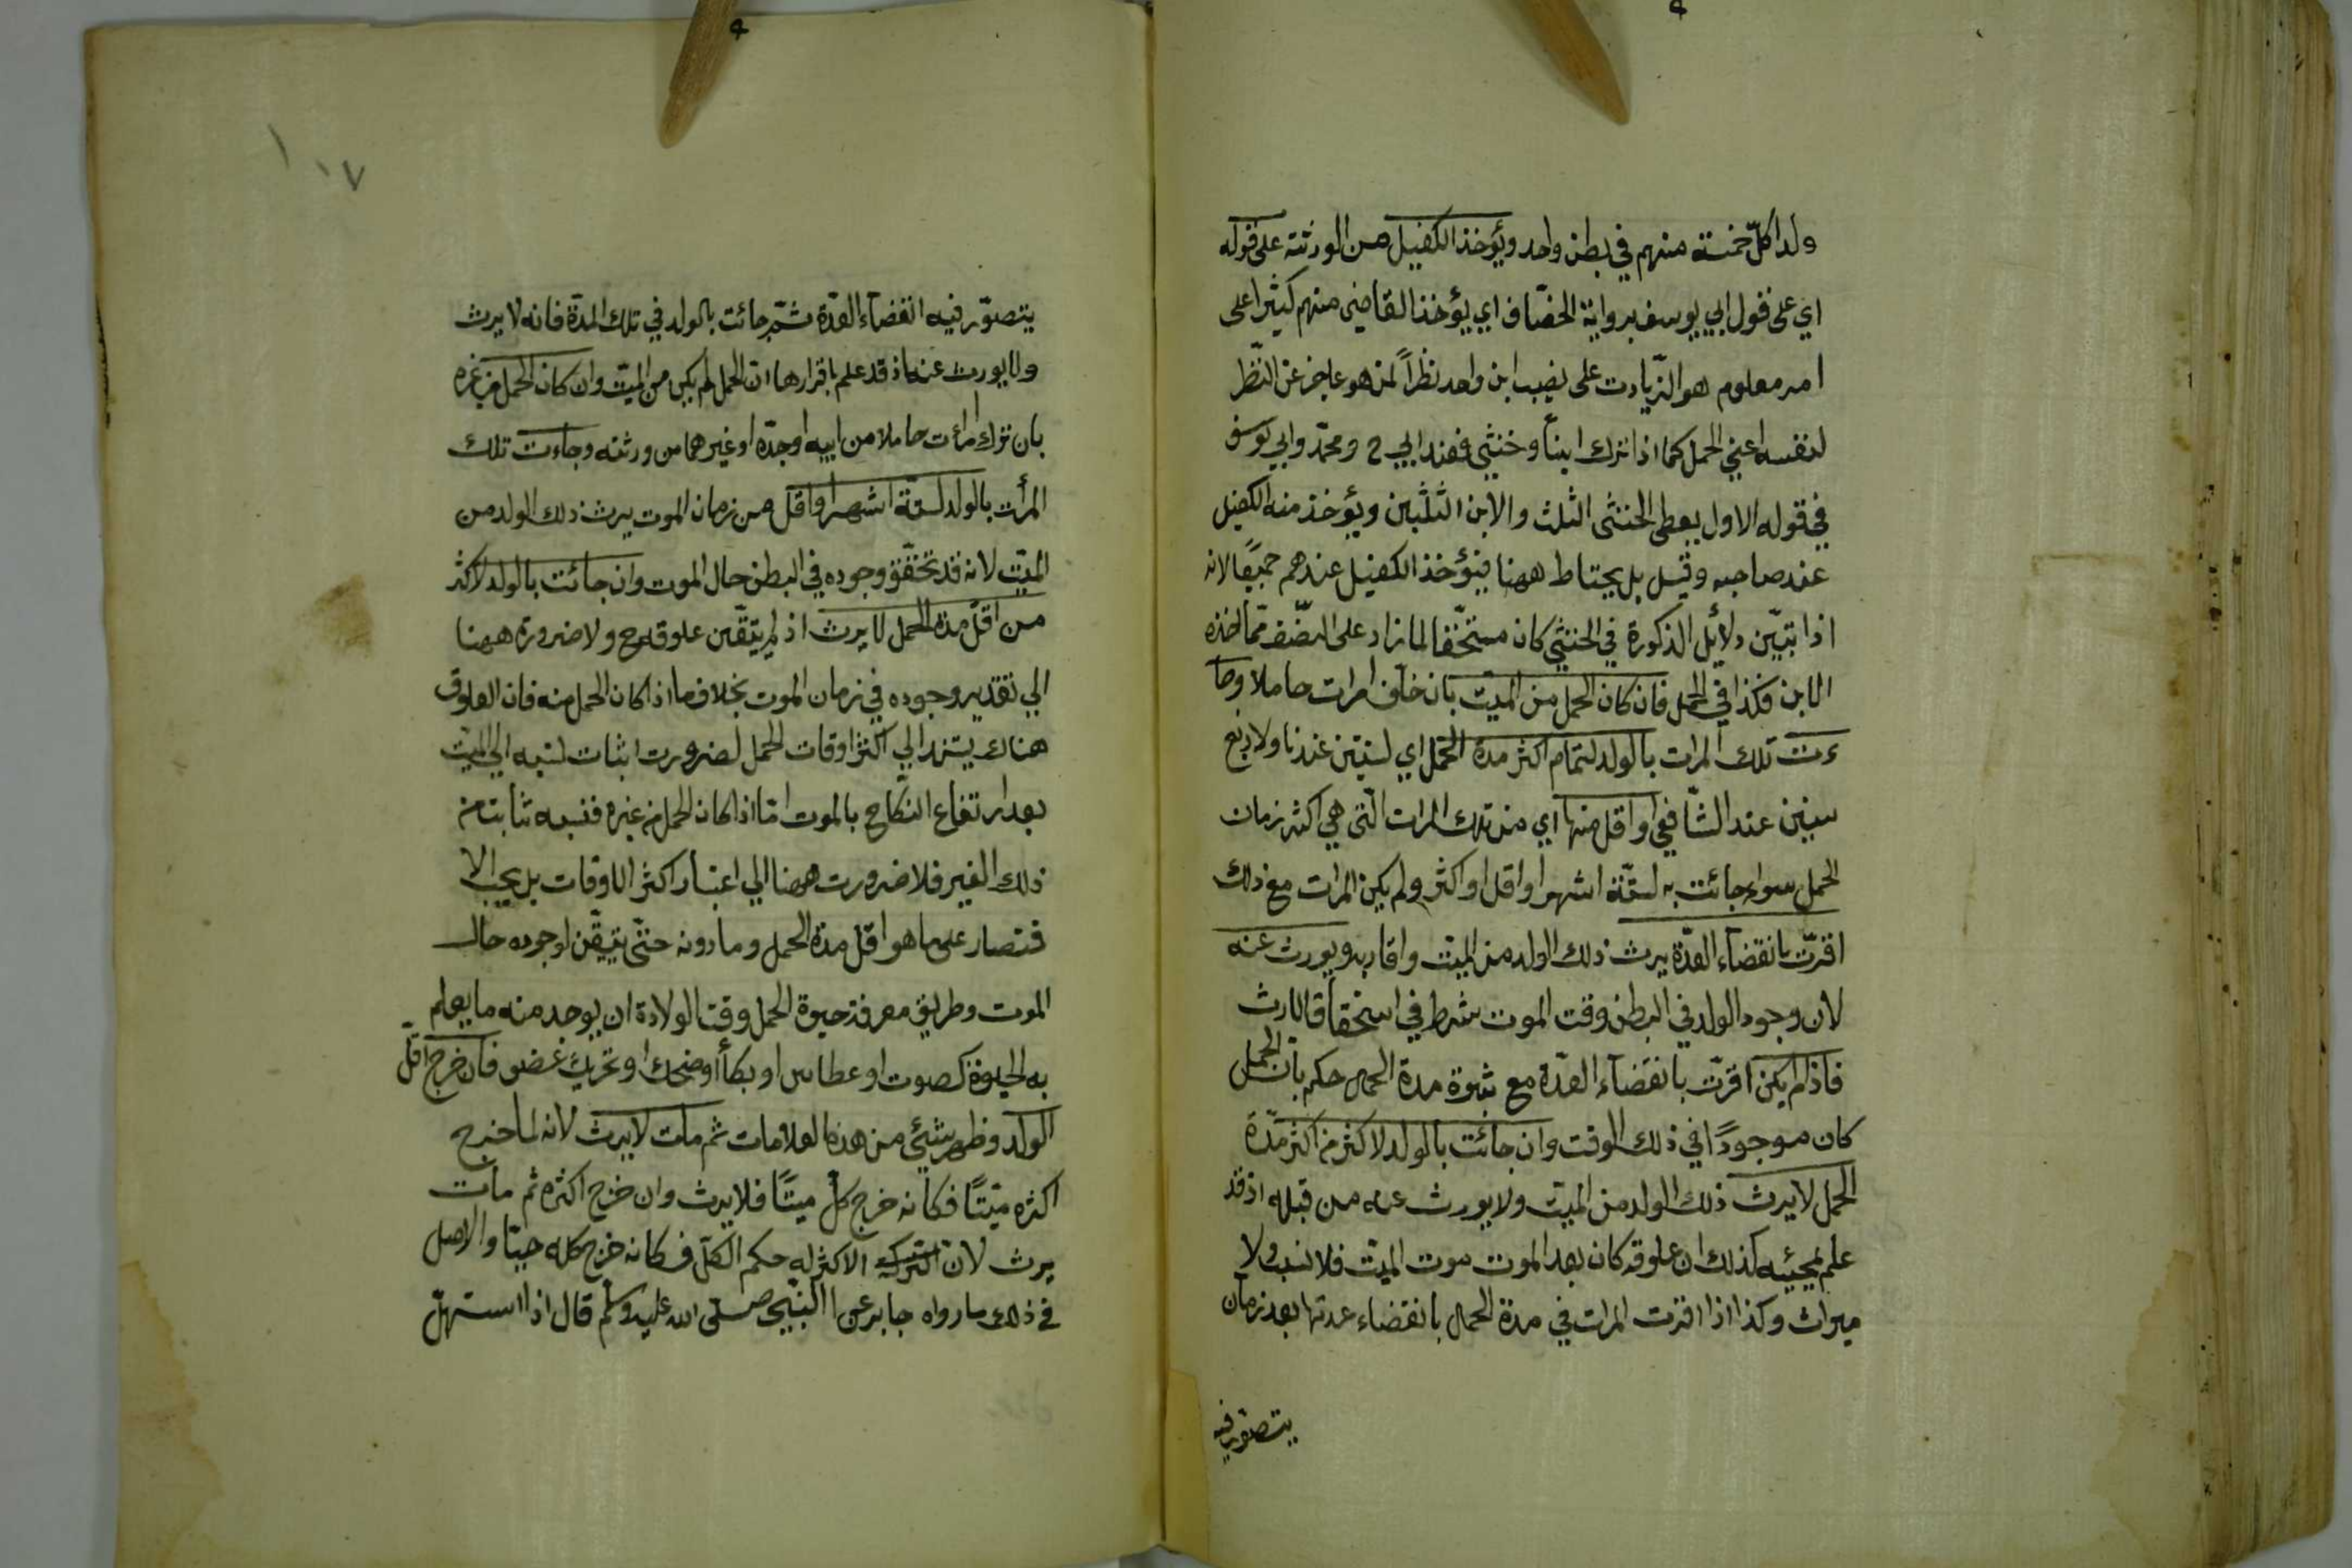 ولدا كلّ خمسة منهم في بطن واحد ويؤخذ الكفيل من الورثة على قوله
اي على قول ابي يوسف برواية الخصّاف اي يؤخذ القاضي منهم كثيرا على
امر معلوم هو الزّيادت على نصيب ابن واحد نظراً لمن هو عاجز عن النّظر
لنفسه اعني الحمل كما اذا ترك ابناً وخنثي فعند ابي ح ومحمّد وابي يوسف
في قوله الاول يعطى الخنثى الثلث والابن الثلثين ويؤخذ منه الكفيل
عند صاحبه وقيل بل يحتاط ههنا فيؤخذ الكفيل عندهم جميعًا لانه
اذا تبيّن دلائل الذكورة في الخنثي كان مستحقّا لما زاد على النصّف ممّا اخذه
الابن فكذا في الحمل فان كان الحمل من الميّت بان خلّف امرات حاملا وجا
ءت تلك المرات بالولد لتمام اكثر مدة الحمل اي لسنتين عندنا ولاربع
سنين عند الشّافعي او اقل منها اي من تلك المرات الّتي هي اكثر زمان
الحمل سواء جائت به لستّة اشهر او اقل او اكثر ولم يكن المرات مع ذلك
اقرّت بانقضاء العدّة يرث ذلك الولد من الميّت واقاربه ويورث عنه
لان وجود الولد في البطن وقت الموت شرط في استحقاق الارث
فاذا لم يكن اقرّت بانقضاء العدّة مع ثبوة مدة الحمل حكم بانّ الحمل
كان موجودًا في ذلك الوقت وان جائت بالولد لاكثر من اكثر مدّة
الحمل لا يرث ذلك الولد من الميّت ولا يورث عنه من قبله اذ قد
علم بمجيئه كذلك ان علوقه كان بعد الموت موت الميّت فلا نسب ولا
ميراث وكذا اذا اقرت المرات في مدة الحمل بانقضاء عدتها بعد زمان
يتصوّر فيه
١٠٧
يتصوّر فيه انقضاء العدّة ثمّ جائت بالولد في تلك المدّة فانه لا يرث
ولا يورث عنه اذ قد علم باقرارها انّ الحمل لم يكن من الميّت وان كان الحمل من غيره
بان ترك امرءت حاملا من ابيه او جدّه او غيرهما من ورثته وجاءت تلك
المرأت بالولد لستّة اشهر او اقل من زمان الموت يرث ذلك الولد من
الميّت لانه قد تحقّق وجوده في البطن حال الموت وان جائت بالولد لاكثر
من اقلّ مدة الحمل لا يرث اذ لم يتيقّن علوقه ح ولا ضرورة ههنا
الي تقدير وجوده في زمان الموت بخلاف ما اذا كان الحمل منه فان العلوق
هناك يستند الي اكثر اوقات الحمل لضرورت اثبات نسبه الي الميّت
بعد ارتفاع النكّاح بالموت امّا اذا كان الحمل من غيره فنسبه ثابت من
ذلك الغير فلا ضرورت ههنا الي اعتبار اكثر الاوقات بل يجب الا
قتصار على ما هو اقلّ مدة الحمل وما دونه حتّى يتيقّن لوجوده حال
الموت وطريق معرفة حيوة الحمل وقت الولادة ان يوجد منه ما يعلم
به الحيوة كصوت او عطاس او بكأ او ضحك او تحريك عضو فان خرج اقلّ
الولد وظهر شيئ من هذه العلامات ثم مات لا يرث لانه لما خرج
اكثره ميّتًا فكانه خرج كلّ ميتًا فلا يرث وان خرج اكثره ثم مات
يرث لان الاكثر له حكم الكلّ فكانه خرج كله حيّا والاصل
في ذلك ما رواه جابر عن النّبي صلّى الله عليه وسلّم قال اذا استهلّ